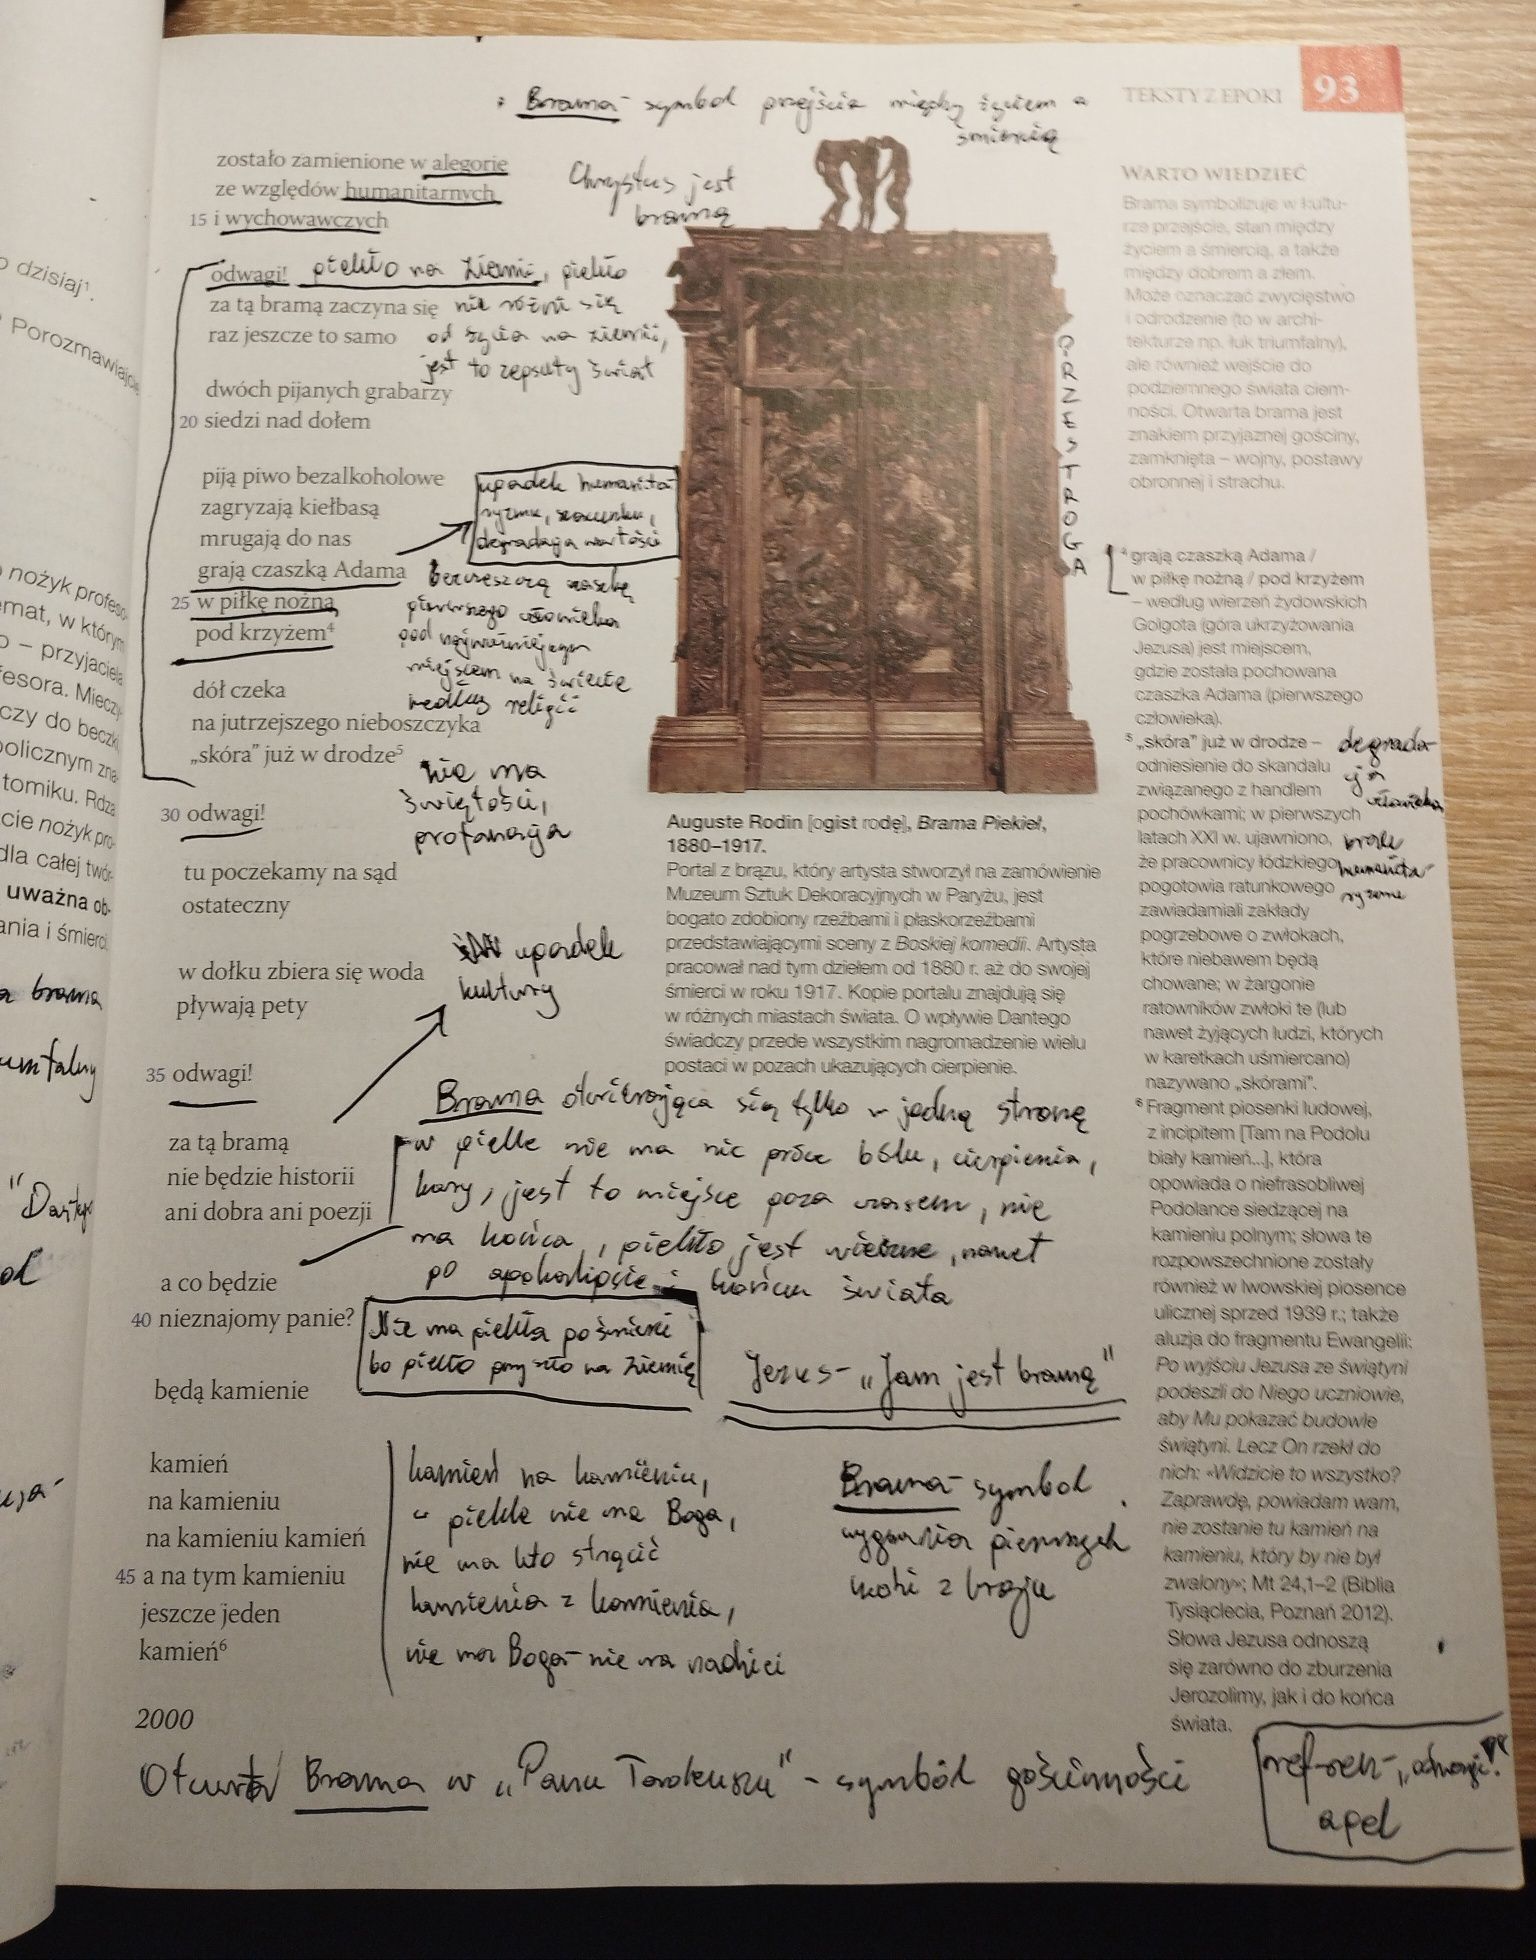 TEKSTY Z EPOKI 93
• Brama - symbol przejścia między życiem a
śmiercią
zostało zamienione w alegorie
ze względów humanitarnych
15 i wychowawczych
Chrystus jest
bramą
odwagi!
za tą bramą zaczyna się
raz jeszcze to samo
piekło na ziemi, piekło
nie różni się
od życia na ziemi,
jest to zepsuty świat
dwóch pijanych grabarzy
20 siedzi nad dołem
piją piwo bezalkoholowe
zagryzają kiełbasą
mrugają do nas
grają czaszką Adama
25 w piłkę nożną
pod krzyżem⁴
upadek humanita
ryzmu, szacunku,
degradacja wartości
bezczeszczą czaszkę
pierwszego człowieka
pod najważniejszym
miejscem na świecie
według religii
dół czeka
na jutrzejszego nieboszczyka
„skóra” już w drodze⁵
nie ma
świętości,
profanacja
30 odwagi!
tu poczekamy na sąd
ostateczny
w dołku zbiera się woda
pływają pety
upadek
kultury
35 odwagi!
za tą bramą
nie będzie historii
ani dobra ani poezji
Brama otwierająca się tylko w jedną stronę
w piekle nie ma nic prócz bólu, cierpienia,
kary, jest to miejsce poza czasem, nie
ma końca, piekło jest wieczne, nawet
po apokalipsie i końcu świata
a co będzie
40 nieznajomy panie?
Nie ma piekła po śmierci
bo piekło przyszło na ziemię
Jezus - „Jam jest bramą”
będą kamienie
kamień
na kamieniu
na kamieniu kamień
45 a na tym kamieniu
jeszcze jeden
kamień⁶
kamień na kamieniu,
w piekle nie ma Boga,
nie ma kto strącić
kamienia z kamienia,
nie ma Boga - nie ma nadziei
Brama - symbol
wygnania pierwszych
ludzi z kraju
2000
Otwarta Brama w „Panu Tadeuszu” - symbol gościnności
refren - „odwagi!”
apel
PRZESTROGA
Auguste Rodin [ogist rodę], Brama Piekieł,
1880–1917.
Portal z brązu, który artysta stworzył na zamówienie
Muzeum Sztuk Dekoracyjnych w Paryżu, jest
bogato zdobiony rzeźbami i płaskorzeźbami
przedstawiającymi sceny z Boskiej komedii. Artysta
pracował nad tym dziełem od 1880 r. aż do swojej
śmierci w roku 1917. Kopie portalu znajdują się
w różnych miastach świata. O wpływie Dantego
świadczy przede wszystkim nagromadzenie wielu
postaci w pozach ukazujących cierpienie.
WARTO WIEDZIEĆ
Brama symbolizuje w kultu-
rze przejście, stan między
życiem a śmiercią, a także
między dobrem a złem.
Może oznaczać zwycięstwo
i odrodzenie (to w archi-
tekturze np. łuk triumfalny),
ale również wejście do
podziemnego świata ciem-
ności. Otwarta brama jest
znakiem przyjaznej gościny,
zamknięta – wojny, postawy
obronnej i strachu.
⁴ grają czaszką Adama /
w piłkę nożną / pod krzyżem
– według wierzeń żydowskich
Golgota (góra ukrzyżowania
Jezusa) jest miejscem,
gdzie została pochowana
czaszka Adama (pierwszego
człowieka).
⁵ „skóra” już w drodze –
odniesienie do skandalu
związanego z handlem
pochówkami; w pierwszych
latach XXI w. ujawniono,
że pracownicy łódzkiego
pogotowia ratunkowego
zawiadamiali zakłady
pogrzebowe o zwłokach,
które niebawem będą
chowane; w żargonie
ratowników zwłoki te (lub
nawet żyjących ludzi, których
w karetkach uśmiercano)
nazywano „skórami”.
degrada-
cja
człowieka
brak
humanita-
ryzmu
⁶ Fragment piosenki ludowej,
z incipitem [Tam na Podolu
biały kamień...], która
opowiada o niefrasobliwej
Podolance siedzącej na
kamieniu polnym; słowa te
rozpowszechnione zostały
również w lwowskiej piosence
ulicznej sprzed 1939 r.; także
aluzja do fragmentu Ewangelii:
Po wyjściu Jezusa ze świątyni
podeszli do Niego uczniowie,
aby Mu pokazać budowle
świątyni. Lecz On rzekł do
nich: «Widzicie to wszystko?
Zaprawdę, powiadam wam,
nie zostanie tu kamień na
kamieniu, który by nie był
zwalony»; Mt 24,1–2 (Biblia
Tysiąclecia, Poznań 2012).
Słowa Jezusa odnoszą
się zarówno do zburzenia
Jerozolimy, jak i do końca
świata.
dzisiaj¹.
Porozmawiajcie
nożyk profeso-
emat, w którym
– przyjaciela
fesora. Mieczy-
czy do beczki
tomiku. Rdza
cie nożyk pro-
dla całej twór-
uważna ob-
ania i śmierci.
brama